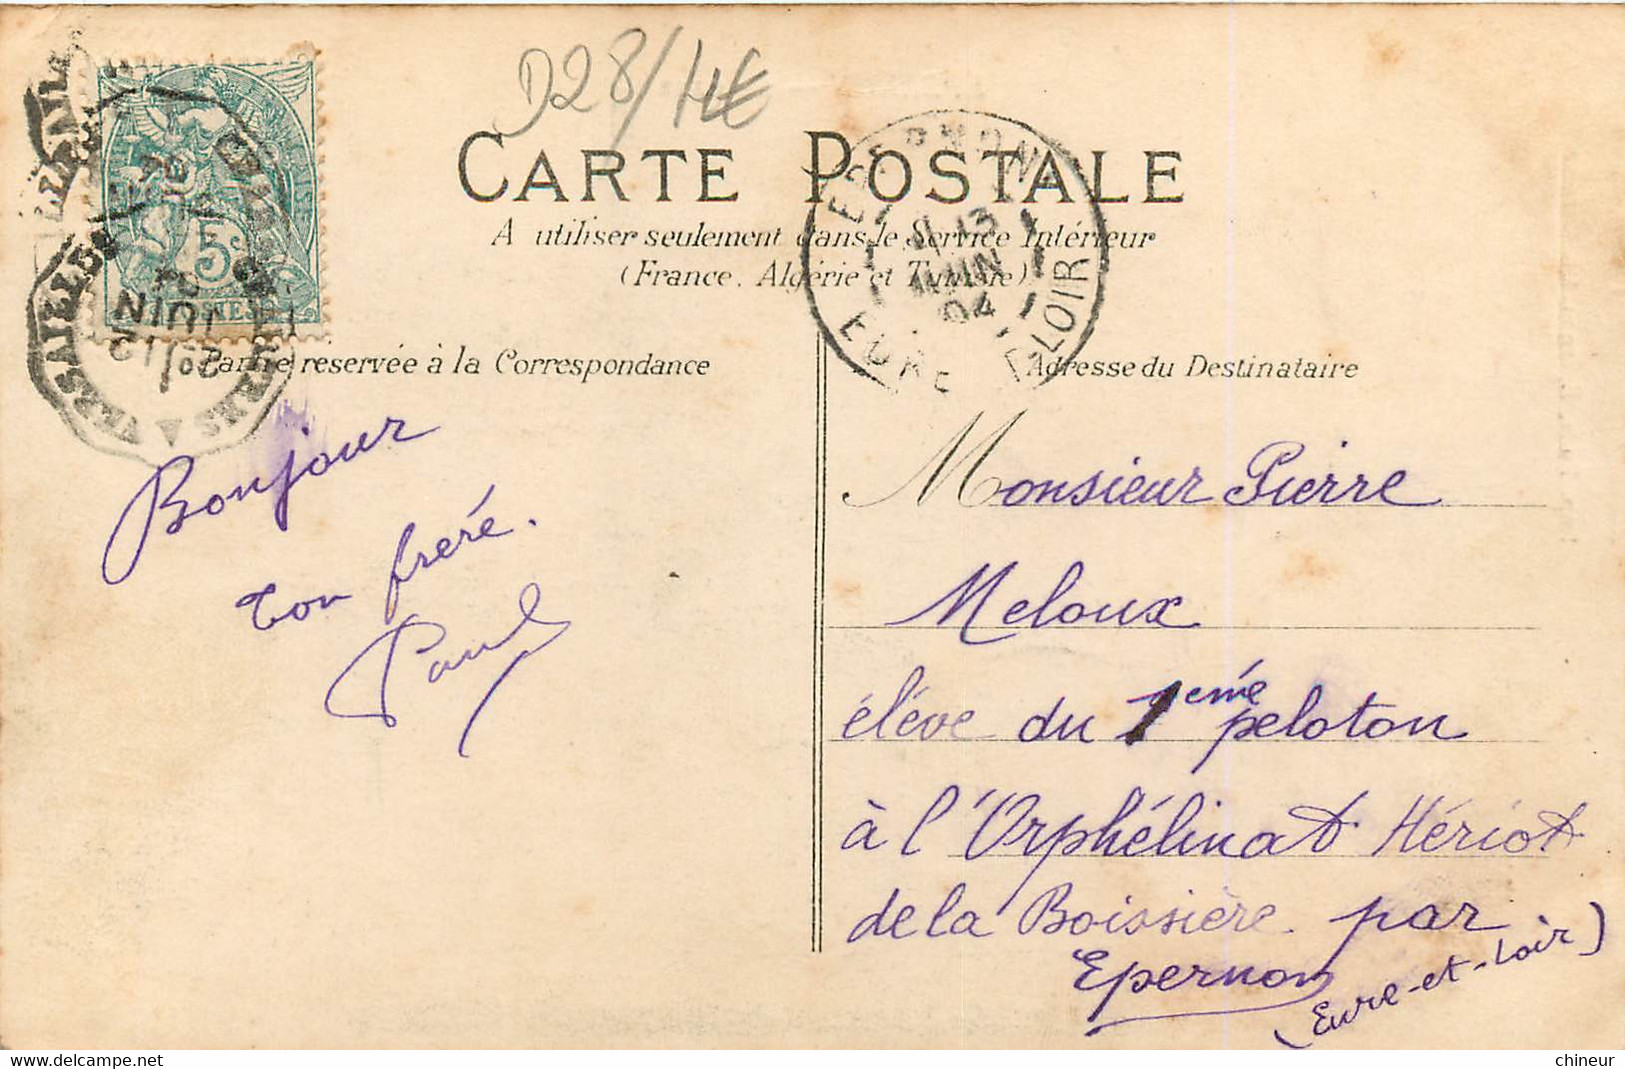 D28/14€
CARTE POSTALE
A utiliser seulement dans le Service Intérieur
(France, Algérie et Tunisie)
Partie réservée à la Correspondance
Adresse du Destinataire
5c
VERSAILLES
JUIN
04
EPERNON
13
JUIN
04
EURE-ET-LOIR
Bonjour
Ton frère.
Paul
Monsieur Pierre
Meloux
élève du 1ème peloton
à l'Orphélinat Hériot
de la Boissière par
Epernon
(Eure-et-Loir)
delcampe.net
chineur